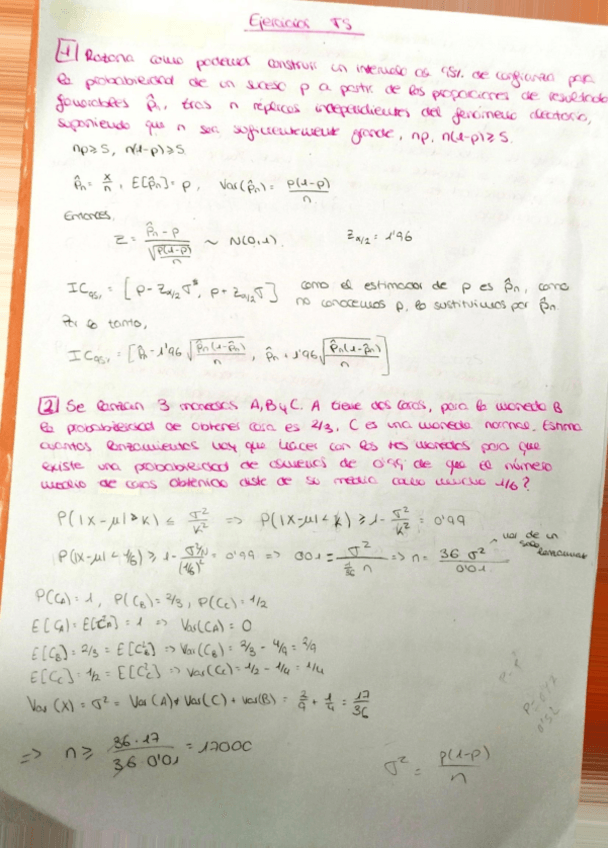 Ejercicios T5
1 Razona como podemos construir un intervalo al 95% de confianza para
la probabilidad de un suceso p a partir de las proporciones de resultados
favorables p̂n, tras n replicas independientes del fenómeno aleatorio,
suponiendo que n sea suficientemente grande, np, n(1-p)≥5.
np≥5, n(1-p)≥5.
p̂n = x/n, E[p̂n] = p, Var(p̂n) = p(1-p)/n
Entonces,
Z = (p̂n - p)/√(p(1-p)/n) ~ N(0,1). Zα/2 = 1'96
IC95% = [p - Zα/2 σ, p + Zα/2 σ] como el estimador de p es p̂n, como
no conocemos p, lo sustituimos por p̂n.
Por lo tanto,
IC95% = [p̂n - 1'96 √(p̂n(1-p̂n)/n), p̂n + 1'96 √(p̂n(1-p̂n)/n)]
2 Se lanzan 3 monedas A, B y C. A tiene dos caras, para la moneda B
la probabilidad de obtener cara es 2/3, C es una moneda normal. Estima
cuantos lanzamientos hay que hacer con las tres monedas para que
existe una probabilidad de al menos de 0'99 de que el número
medio de caras obtenido diste de su media como mucho 1/6?
P(|X-μ|≥k) ≤ σ²/k² => P(|X-μ|<k) ≥ 1 - σ²/k² = 0'99
P(|X-μ|<1/6) ≥ 1 - (σ²/n)/(1/6)² = 0'99 => 0'01 = σ²/(1/36 n) => n = 36σ²/0'01 var de un solo lanzamiento
P(CA) = 1, P(CB) = 2/3, P(CC) = 1/2
E[CA] = E[C²A] = 1 => Var(CA) = 0
E[CB] = 2/3 = E[C²B] => Var(CB) = 2/3 - 4/9 = 2/9
E[CC] = 1/2 = E[C²C] => Var(CC) = 1/2 - 1/4 = 1/4
Var(X) = σ² = Var(A) + Var(C) + Var(B) = 2/9 + 1/4 = 17/36
=> n ≥ 36·17/36·0'01 = 1700
σ² = p(1-p)/n